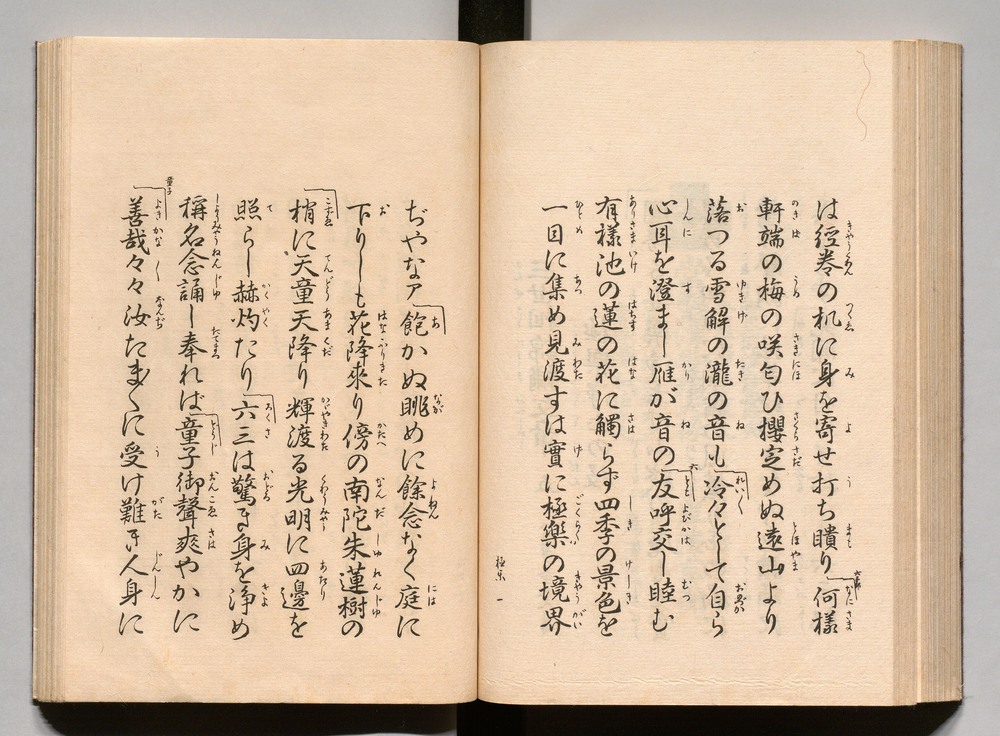 は経巻の机に身を寄せ打ち聵り何様
軒端の梅の咲匂ひ櫻定めぬ遠山より
落つる雪解の瀧の音も冷々として自ら
心耳を澄まし雁が音の友呼交し睦む
有様池の蓮の花に觸らず四季の景色を
一目に集め見渡すは實に極樂の境界
極樂 一
ぢやなァ飽かぬ眺めに餘念なく庭に
下りしも花降來り傍の南陀朱蓮樹の
梢に天童天降り輝渡る光明に四邊を
照らし赫灼たり六三は驚き身を浄め
稱名念誦し奉れば童子御聲爽やかに
童子
善哉々々汝たま〱に受け難き人身に